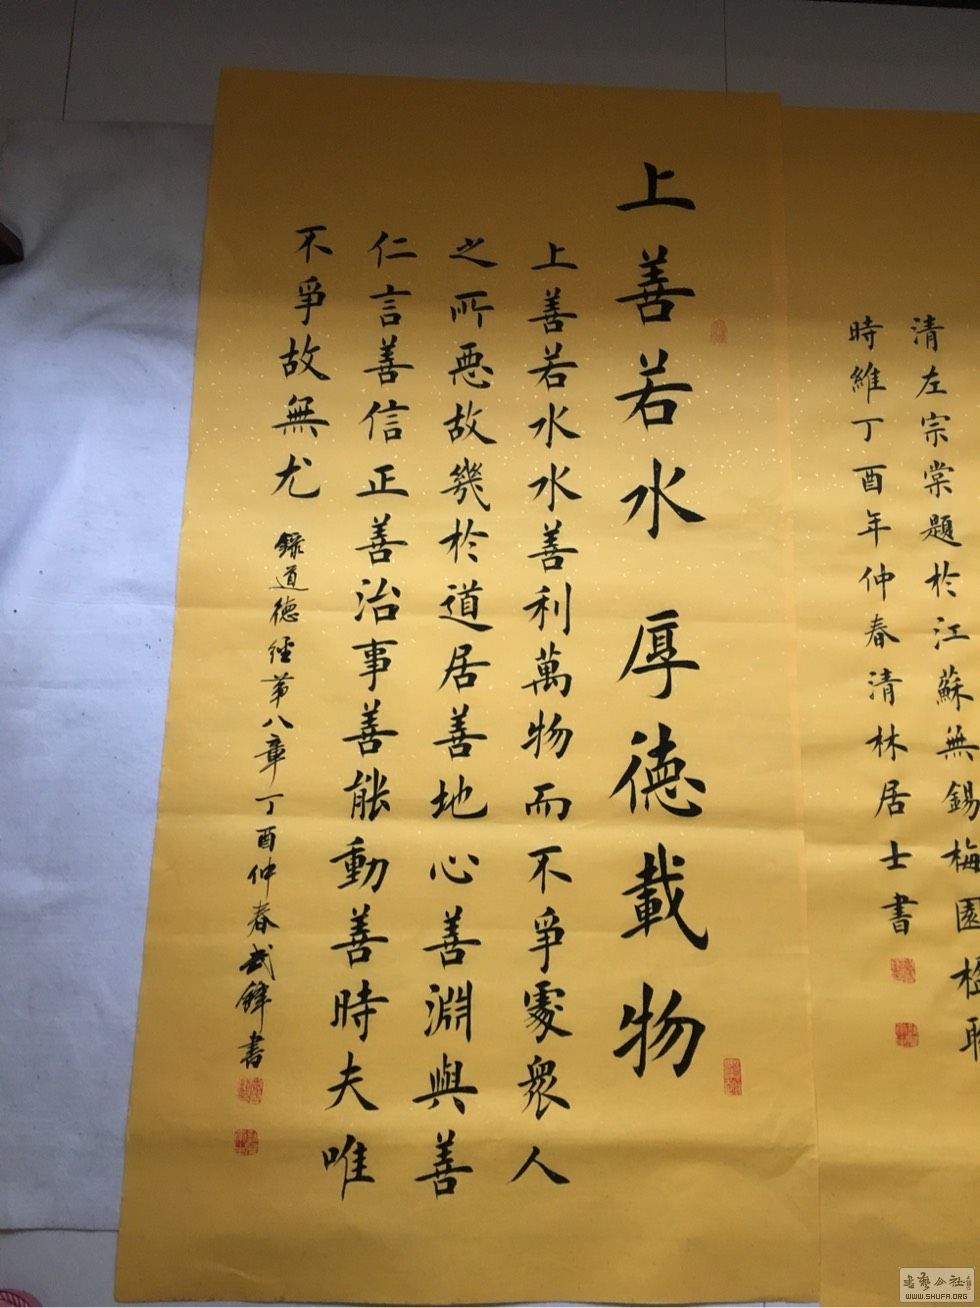 清左宗棠題於江蘇無錫梅園楹聯
時維丁酉年仲春清林居士書
上善若水厚德載物
上善若水水善利萬物而不爭處衆人
之所惡故幾於道居善地心善淵與善
仁言善信正善治事善能動善時夫唯
不爭故無尤 錄道德經第八章丁酉仲春武鋒書
書藝公社
WWW.SHUFA.ORG